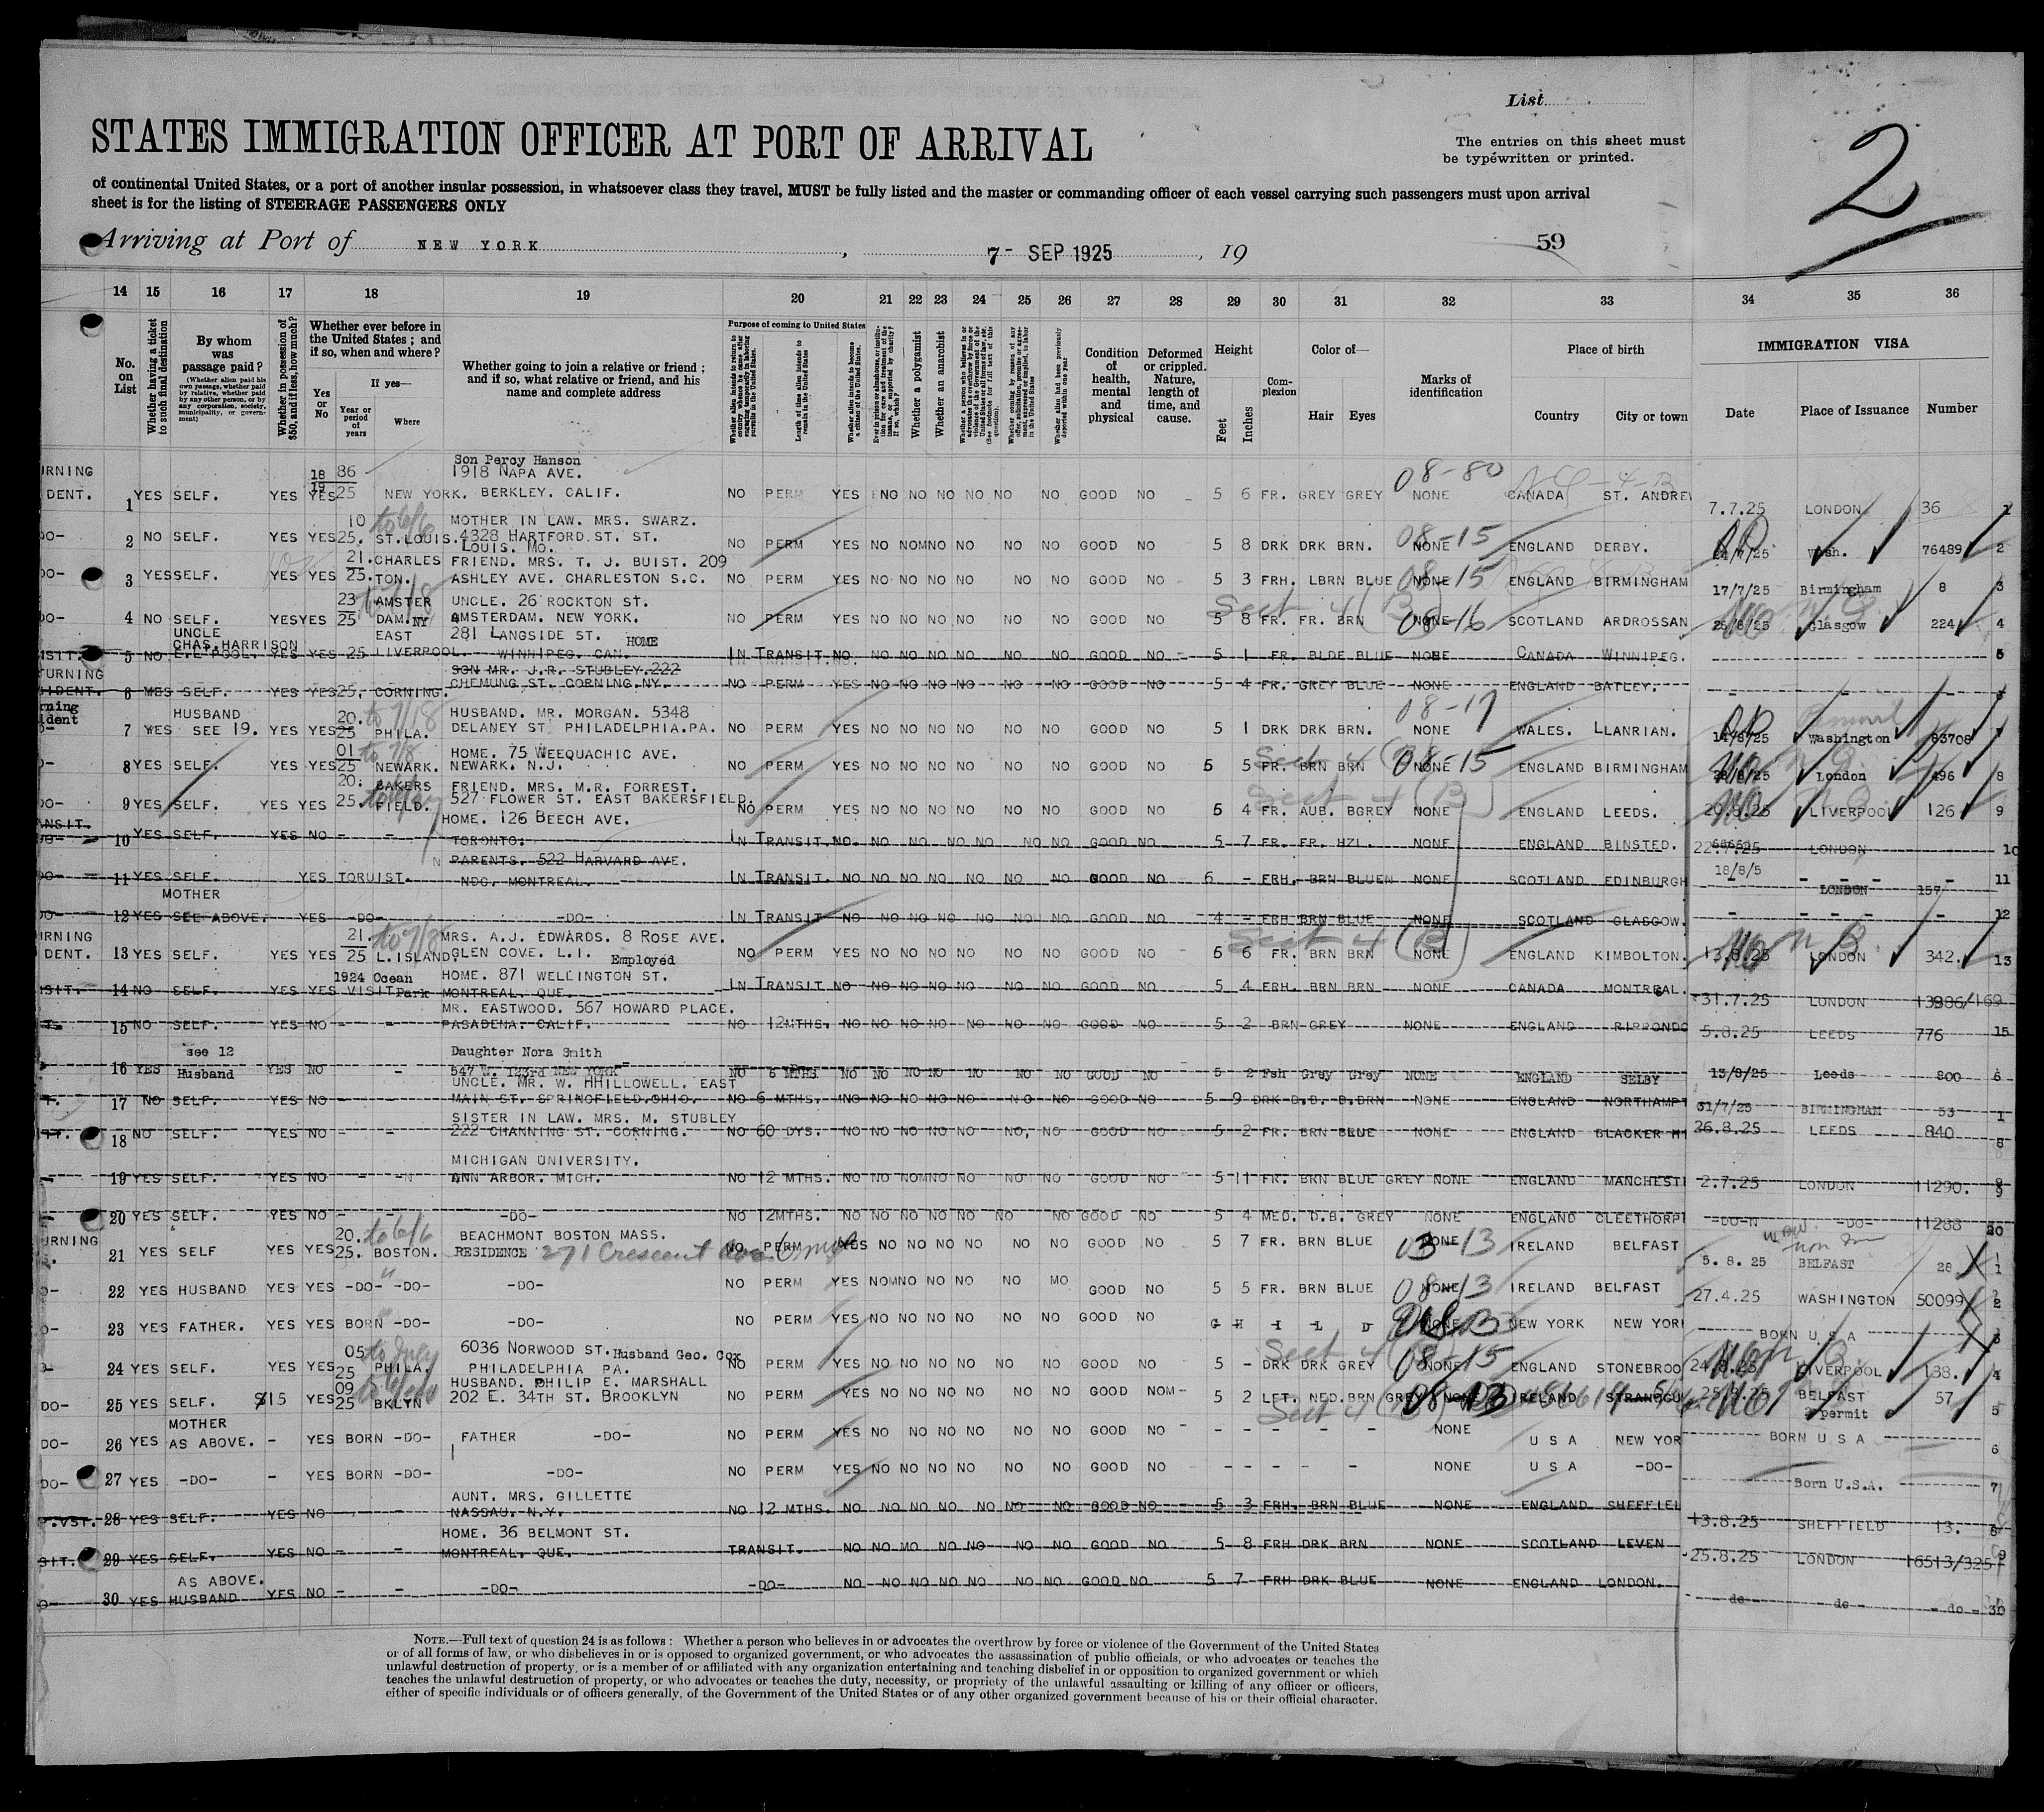 List
STATES IMMIGRATION OFFICER AT PORT OF ARRIVAL
The entries on this sheet must
be typewritten or printed.
2
of continental United States, or a port of another insular possession, in whatsoever class they travel, MUST be fully listed and the master or commanding officer of each vessel carrying such passengers must upon arrival
sheet is for the listing of STEERAGE PASSENGERS ONLY
Arriving at Port of NEW YORK, 7- SEP 1925, 19 59
14 15 16 17 18 19 20 21 22 23 24 25 26 27 28 29 30 31 32 33 34 35 36
No. on List
Whether having a ticket to such final destination
By whom was passage paid?
(Whether alien paid his own passage, whether paid by relative, whether paid by any other person, or by any corporation, society, municipality, or government)
Whether in possession of $50, and if less, how much?
Whether ever before in the United States; and if so, when and where?
Yes or No
If yes—
Year or period of years
Where
Whether going to join a relative or friend; and if so, what relative or friend, and his name and complete address
Purpose of coming to United States
Whether alien intends to return to country whence he came after engaging temporarily in laboring pursuits in the United States.
Length of time alien intends to remain in the United States
Whether alien intends to become a citizen of the United States.
Whether a polygamist
Whether an anarchist
Condition of health, mental and physical
Deformed or crippled. Nature, length of time, and cause.
Height
Feet
Inches
Complexion
Color of—
Hair Eyes
Marks of identification
Place of birth
Country City or town
IMMIGRATION VISA
Date Place of Issuance Number
Son Percy Hanson
URNING 18 86 1918 NAPA AVE. 08-80
DENT. 1 YES SELF. YES YES 19 25 NEW YORK. BERKLEY. CALIF. NO PERM YES NO NO NO NO NO NO GOOD NO - 5 6 FR. GREY GREY NONE CANADA ST. ANDREW 7.7.25 LONDON 36 1
10 to 6/6 MOTHER IN LAW. MRS. SWARZ. 08-15
DO- 2 NO SELF. YES YES 25. ST.LOUIS. 4328 HARTFORD ST. ST. LOUIS. MO. NO PERM YES NO NOMNO NO NO NO GOOD NO 5 8 DRK DRK BRN. NONE ENGLAND DERBY. 24/7/25 Wash. 76489 2
21. CHARLES FRIEND. MRS. T. J. BUIST. 209
DO- 3 YES SELF. YES YES 25. TON. ASHLEY AVE. CHARLESTON S.C. NO PERM YES NO NO NO NO NO NO GOOD NO 5 3 FRH. LBRN BLUE NONE 08 15 ENGLAND BIRMINGHAM 17/7/25 Birmingham 8 3
23 to 7/8 AMSTER UNCLE. 26 ROCKTON ST. Sect 4 (B)
DO- 4 NO SELF. YES YES 25 DAM. NY AMSTERDAM. NEW YORK. NO PERM YES NO NO NO NO NO NO GOOD NO 5 8 FR. FR. BRN NONE 08-16 SCOTLAND ARDROSSAN 26/8/25 Glasgow 224 4
UNCLE CHAS. HARRISON EAST 281 LANGSIDE ST. HOME
NSIT. 5 NO E.L'POOL. YES YES 25 LIVERPOOL. WINNIPEG. CAN. IN TRANSIT. NO. NO NO NO NO NO NO GOOD NO - 5 1 FR. BLDE BLUE NONE CANADA WINNIPEG. 5
TURNING SON MR. J.R. STUBLEY. 222
SIDENT. 6 YES SELF. YES YES 25, CORNING. CHEMUNG ST. CORNING. NY. NO PERM YES NO NO NO NO NO NO GOOD NO 5 4 FR. GREY BLUE NONE ENGLAND BATLEY.
rning ident HUSBAND 20. to 7/18 HUSBAND. MR. MORGAN. 5348 08-17
O- 7 YES SEE 19. YES YES 25 PHILA. DELANEY ST. PHILADELPHIA.PA. NO PERM YES NO NO NO NO NO NO GOOD NO 5 1 DRK DRK BRN. NONE WALES. LLANRIAN. 14/8/25 Washington 83708
01 to 7/8 HOME. 75 WEEQUACHIC AVE. Sect 4 (B)
O- 8 YES SELF. YES YES 25 NEWARK. NEWARK. N.J. NO PERM YES NO NO NO NO NO NO GOOD NO 5 5 FR. BRN BRN NONE 08-15 ENGLAND BIRMINGHAM 28/8/25 London 496 8
20. BAKERS FRIEND. MRS. M.R. FORREST. Sect 4 (B)
DO- 9 YES SELF. YES YES 25. FIELD. 527 FLOWER ST. EAST BAKERSFIELD. NO PERM YES NO NO NO NO NO NO GOOD NO 5 4 FR. AUB. BGREY NONE ENGLAND LEEDS. 20.8.25 LIVERPOOL 126 9
ANSIT. HOME. 126 BEECH AVE.
DO- 10 YES SELF. YES NO - - TORONTO. IN TRANSIT. NO. NO NO NO NO NO NO GOOD NO 5 7 FR. FR. HZL. NONE ENGLAND BINSTED. 22.7.25 LONDON 10
PARENTS. 522 HARVARD AVE.
DO- 11 YES SELF. YES TORUIST. NDG. MONTREAL. IN TRANSIT. NO NO NO NO NO NO NO GOOD NO 6 - FRH. BRN BLUEN NONE SCOTLAND EDINBURGH 18/8/5 LONDON 157 11
MOTHER
DO- 12 YES SEE ABOVE. YES -DO- -DO- IN TRANSIT NO NO NO NO NO NO NO GOOD NO 4 - FRH BRN BLUE NONE SCOTLAND GLASGOW. 12
URNING 21. to 7/8 MRS. A.J. EDWARDS. 8 ROSE AVE. Sect 4 (B)
DENT. 13 YES SELF. YES YES 25 L.ISLAND. GLEN COVE. L.I. Employed NO PERM YES NO NO NO NO NO NO GOOD NO 5 6 FR. BRN BRN NONE ENGLAND KIMBOLTON. 13.8.25 LONDON 342. 13
1924 Ocean Park HOME. 871 WELLINGTON ST.
NSIT. 14 NO SELF. YES YES VISIT MONTREAL. QUE. IN TRANSIT NO NO NO NO NO NO NO GOOD NO 5 4 FRH. BRN BRN NONE CANADA MONTREAL. 31.7.25 LONDON 13986/169
MR. EASTWOOD. 567 HOWARD PLACE.
15 NO SELF. YES NO - - PASADENA. CALIF. NO 12MTHS. NO NO NO NO NO NO NO GOOD NO 5 2 BRN GREY NONE ENGLAND RIPPONDO 5.8.25 LEEDS 776 15
see 12 Daughter Nora Smith
16 YES Husband YES NO - 547 W. 123rd NEW YORK NO 6 MTHS. NO NO NO NO NO NO NO GOOD NO 5 2 Fsh Grey Grey NONE ENGLAND SELBY 13/8/25 Leeds 800 6
UNCLE. MR. W. HHILLOWELL. EAST
T. 17 NO SELF. YES NO - MAIN ST. SPRINGFIELD.OHIO. NO 6 MTHS. NO NO NO NO NO NO NO GOOD NO 5 9 DRK D.B. D.BRN NONE ENGLAND NORTHAMPT 31/7/25 BIRMINGHAM 53 1
SISTER IN LAW. MRS. M. STUBLEY
18 NO SELF. YES NO - - 222 CHANNING ST. CORNING. NO 60 DYS. NO NO NO NO NO NO, NO GOOD NO 5 2 FR. BRN BLUE NONE ENGLAND BLACKER H 26.8.25 LEEDS 840 8
MICHIGAN UNIVERSITY.
19 YES SELF. YES NO - - ANN ARBOR. MICH. NO 12 MTHS. NO NO NOMNO NO NO NO GOOD NO 5 11 FR. BRN BLUE GREY NONE ENGLAND MANCHEST 2.7.25 LONDON 11290. 9
20 YES SELF. YES NO - - -DO- NO 12MTHS. NO NO NO NO NO NO NO GOOD NO 5 4 MED. D.B. GREY NONE ENGLAND CLEETHORP -DO-N -DO- 11288 20
URNING 20. to 6/6 BEACHMONT BOSTON MASS.
21 YES SELF YES YES 25. BOSTON. RESIDENCE 271 Crescent Ave NO PERM YES NO NO NO NO NO NO GOOD NO 5 7 FR. BRN BLUE NONE 03 13 IRELAND BELFAST 5.8.25 BELFAST 28 1
O- 22 YES HUSBAND YES YES -DO- -DO- -DO- NO PERM YES NOMNO NO NO NO MO GOOD NO 5 5 FR. BRN BLUE NONE 08 13 IRELAND BELFAST 27.4.25 WASHINGTON 50099 2
O- 23 YES FATHER. YES YES BORN -DO- -DO- NO PERM YES NO NO NO NO NO NO GOOD NO C H I L D NONE NEW YORK NEW YORK BORN U S A 3
05 to July 6036 NORWOOD ST. Husband Geo. Cox Sect 4 (B)
24 YES SELF. YES YES 25 PHILA. PHILADELPHIA PA. NO PERM YES NO NO NO NO NO NO GOOD NO 5 - DRK DRK GREY NONE 08-15 ENGLAND STONEBROO 24.8.25 LIVERPOOL 138. 4
09 HUSBAND. PHILIP E. MARSHALL
DO- 25 YES SELF. $15 YES 25 BKLYN 202 E. 34TH ST. BROOKLYN NO PERM YES NO NO NO NO NO NO GOOD NOM- 5 2 LFT. NED.BRN GREY NONE 08 13 IRELAND 25.8.25 BELFAST permit 57 5
MOTHER Sect 4 (B)
DO- 26 YES AS ABOVE. - YES BORN -DO- FATHER -DO- NO PERM YES NO NO NO NO NO NO GOOD NO - - - - - NONE U S A NEW YOR BORN U S A 6
DO- 27 YES -DO- - YES BORN -DO- -DO- NO PERM YES NO NO NO NO NO NO GOOD NO - - - - - NONE U S A -DO- Born U.S.A. 7
AUNT. MRS. GILLETTE
P.VST. 28 YES SELF. YES NO - NASSAU. N.Y. NO 12 MTHS. NO NO NO NO NO NO NO GOOD NO 5 3 FRH. BRN BLUE NONE ENGLAND SHEFFIEL 13.8.25 SHEFFIELD 13. 8
HOME. 36 BELMONT ST.
SIT. 29 YES SELF. YES NO - - MONTREAL. QUE. TRANSIT. NO NO MO NO NO NO NO GOOD NO 5 8 FRH DRK BRN NONE SCOTLAND LEVEN 25.8.25 LONDON 16513/325 9
AS ABOVE.
O- 30 YES HUSBAND YES NO - - -DO- -DO- NO NO NO NO NO NO NO GOOD NO 5 7 FRH DRK BLUE NONE ENGLAND LONDON. do do do 30
NOTE.—Full text of question 24 is as follows: Whether a person who believes in or advocates the overthrow by force or violence of the Government of the United States
or of all forms of law, or who disbelieves in or is opposed to organized government, or who advocates the assassination of public officials, or who advocates or teaches the
unlawful destruction of property, or is a member of or affiliated with any organization entertaining and teaching disbelief in or opposition to organized government or which
teaches the unlawful destruction of property, or who advocates or teaches the duty, necessity, or propriety of the unlawful assaulting or killing of any officer or officers,
either of specific individuals or of officers generally, of the Government of the United States or of any other organized government because of his or their official character.